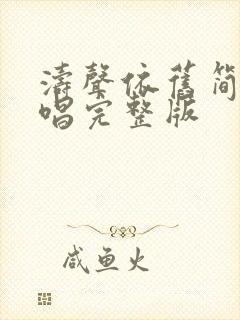 濤聲依舊简
唱完整版
咸鱼火